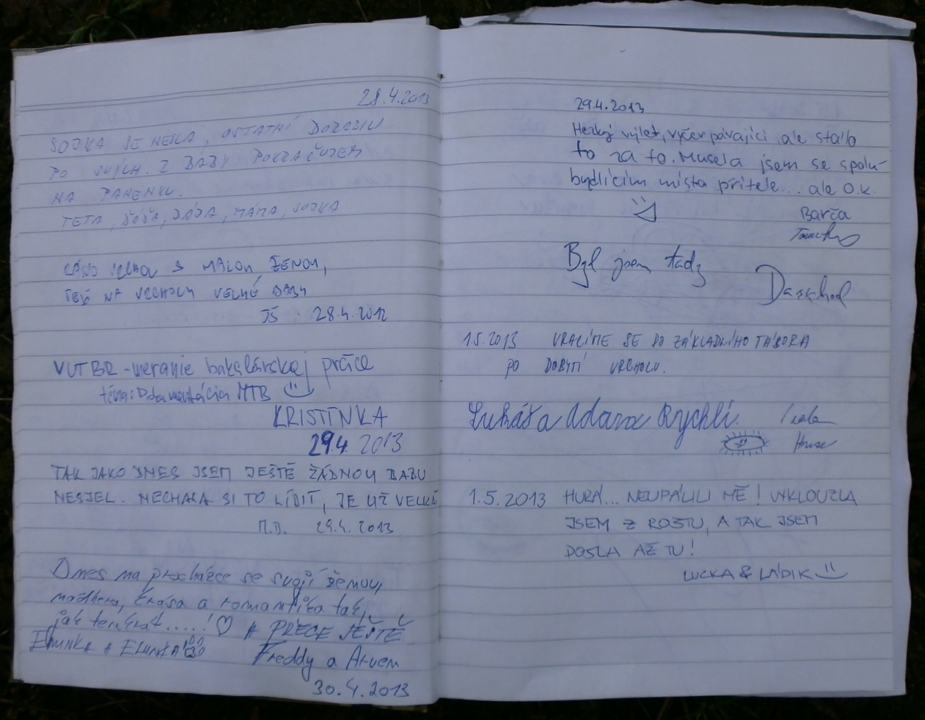 28.4.2013
SOJKA SE NESLA, OSTATNÍ DORAZILI
PO SVÝCH. Z BABY POKRAČUJEM
NA PANENKU.
TETA, DÁDA, MÁMA, SOJKA
S MALOU ŽENOU,
VRCHOLU VELKÉ BABY
JŠ 28.4.2012
VUTBR - meranie bakalárskej práce
téma: Dokumentácia MTB
KRISTÍNKA
29.4. 2013
TAK JAKO DNES JSEM JEŠTĚ ŽÁDNOU BABU
NESJEL. NECHALA SI TO LÍBIT, JE UŽ VELKÁ
M.D. 29.4.2013
Dnes na procházce se svojí ženou,
nádhera, krása a romantika tak,
jak tenkrát.....! ♡ A PŘECE JEŠTĚ
Freddy a Arwen
30.4.2013
29.4.2013
Hezký výlet, vyčerpávající ale stálo
to za to. Musela jsem se spolu-
bydlícím místo přítele... ale O.K.
Barča
Byl jsem tady
1.5.2013 VRACÍME SE DO ZÁKLADNÍHO TÁBORA
PO DOBYTÍ VRCHOLU.
Lukáš a Adara Rychlí
1.5.2013 HURÁ... NEUPÁLILI MĚ! VYKLOUZLA
JSEM Z ROŠTU, A TAK JSEM
DOŠLA AŽ TU!
LUCKA & LÁDIK